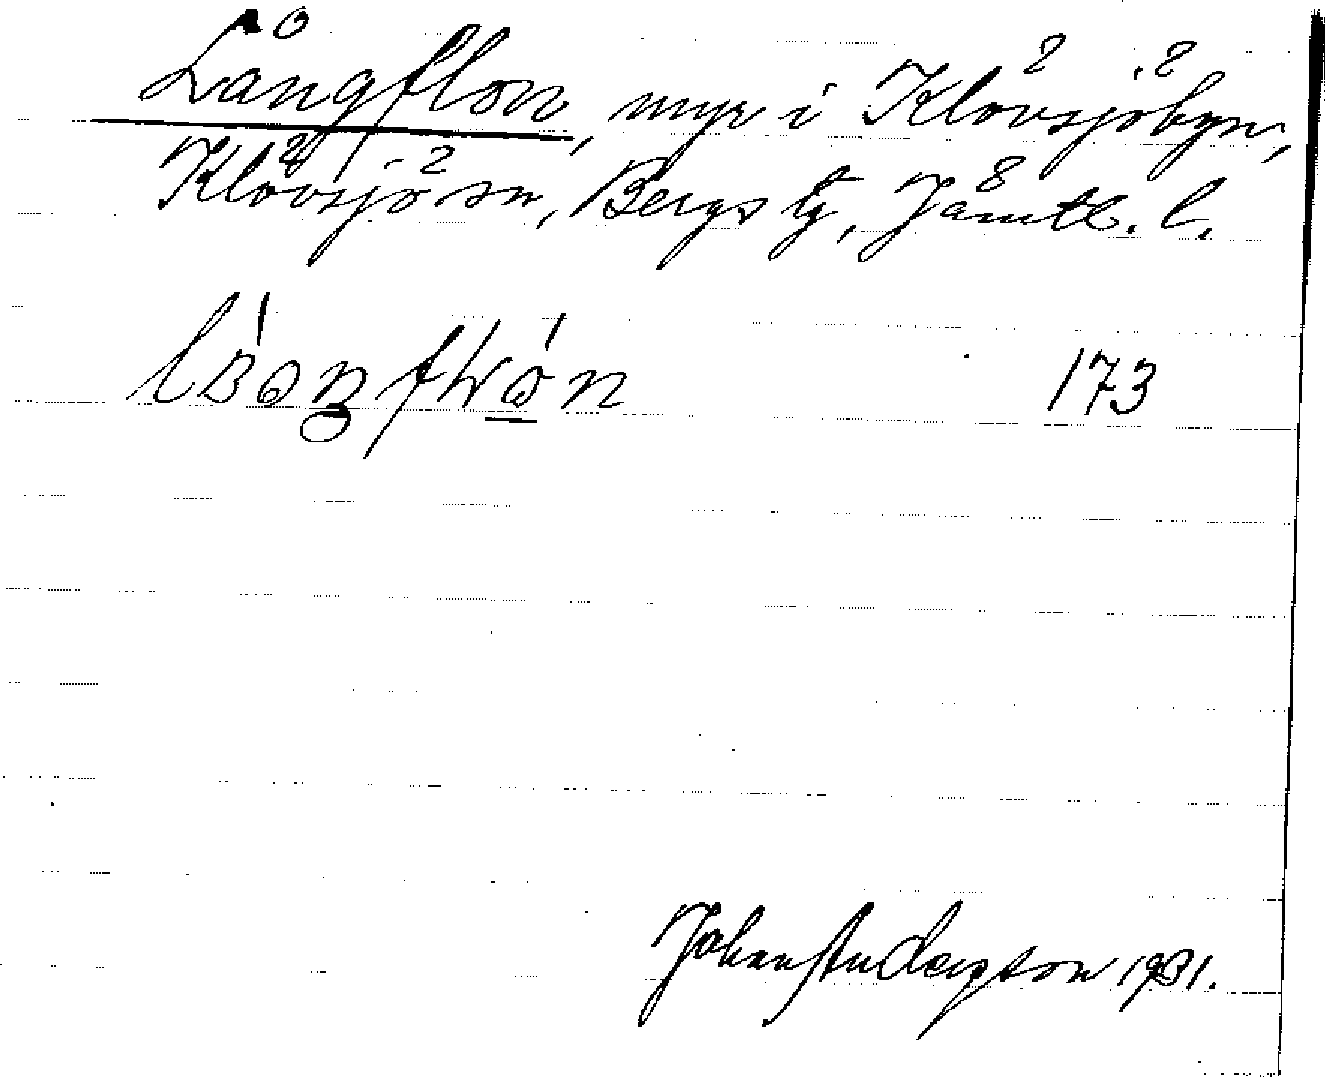 Långflon, myr i Klövsjöbyn,
Klövsjö sn, Bergs tg, Jämtl. l.
173
Johan Anderson 1931.